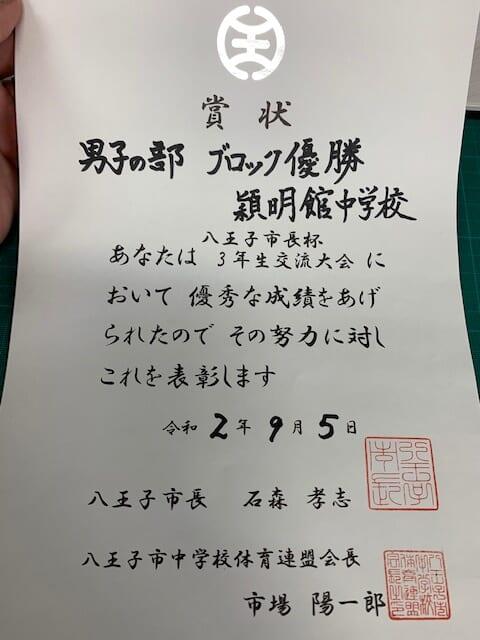 賞状
男子の部 ブロック優勝
穎明館中学校
八王子市長杯
あなたは 3年生交流大会 に
おいて 優秀な成績をあげ
られたので その努力に対し
これを表彰します
令和 2年 9月 5日
八王子市長 石森 孝志
八王子市中学校体育連盟会長
市場 陽一郎